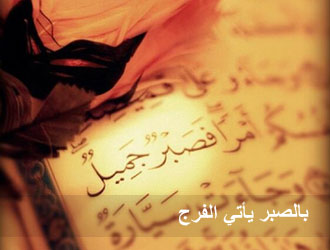 وَجَآءُو عَلَىٰ قَمِيصِهِ
أَمْرًا فَصَبْرٌ جَمِيلٌ
وَجَآءَتْ سَيَّارَةٌ
بالصبر يأتي الفرج